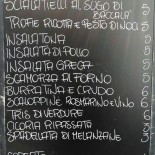 SCIALATIELLI AL SUGO DI 5
BACCALÀ
TROFIE RICOTA e PESTO DI NOCI 5
INSALATONA 5
INSALATA DI POLLO 5
INSALATA GRECA 5
SCAMORZA AL FORNO 5
BURRATINA E CRUDO 6
SCALOPPINE ROSMARINO e VINO 6
TRIS DI VERDURE 3
CICORIA RIPASSATA 3
SPADELLATA DI MELANZANE 3